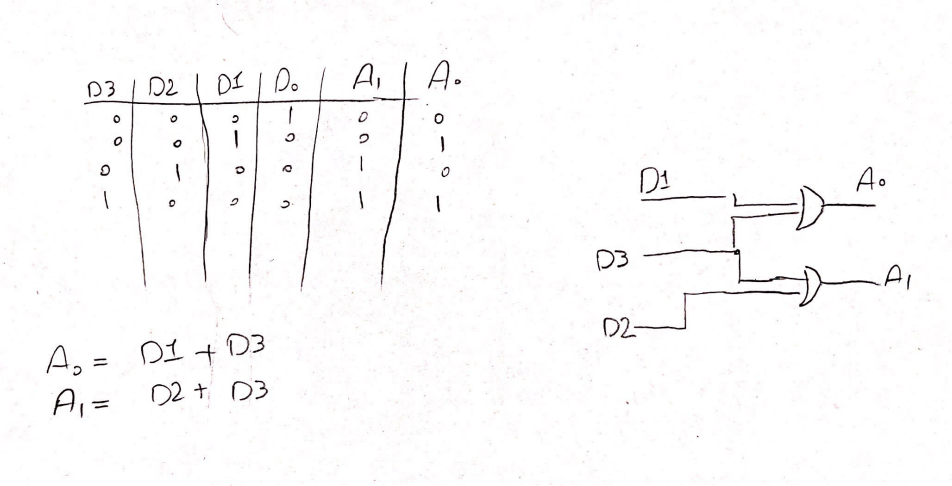 D3 D2 D1 D₀ A₁ A₀
0 0 0 1 0 0
0 0 1 0 0 1
0 1 0 0 1 0
1 0 0 0 1 1
A₀ = D1 + D3
A₁ = D2 + D3
D1 A₀
D3
A₁
D2